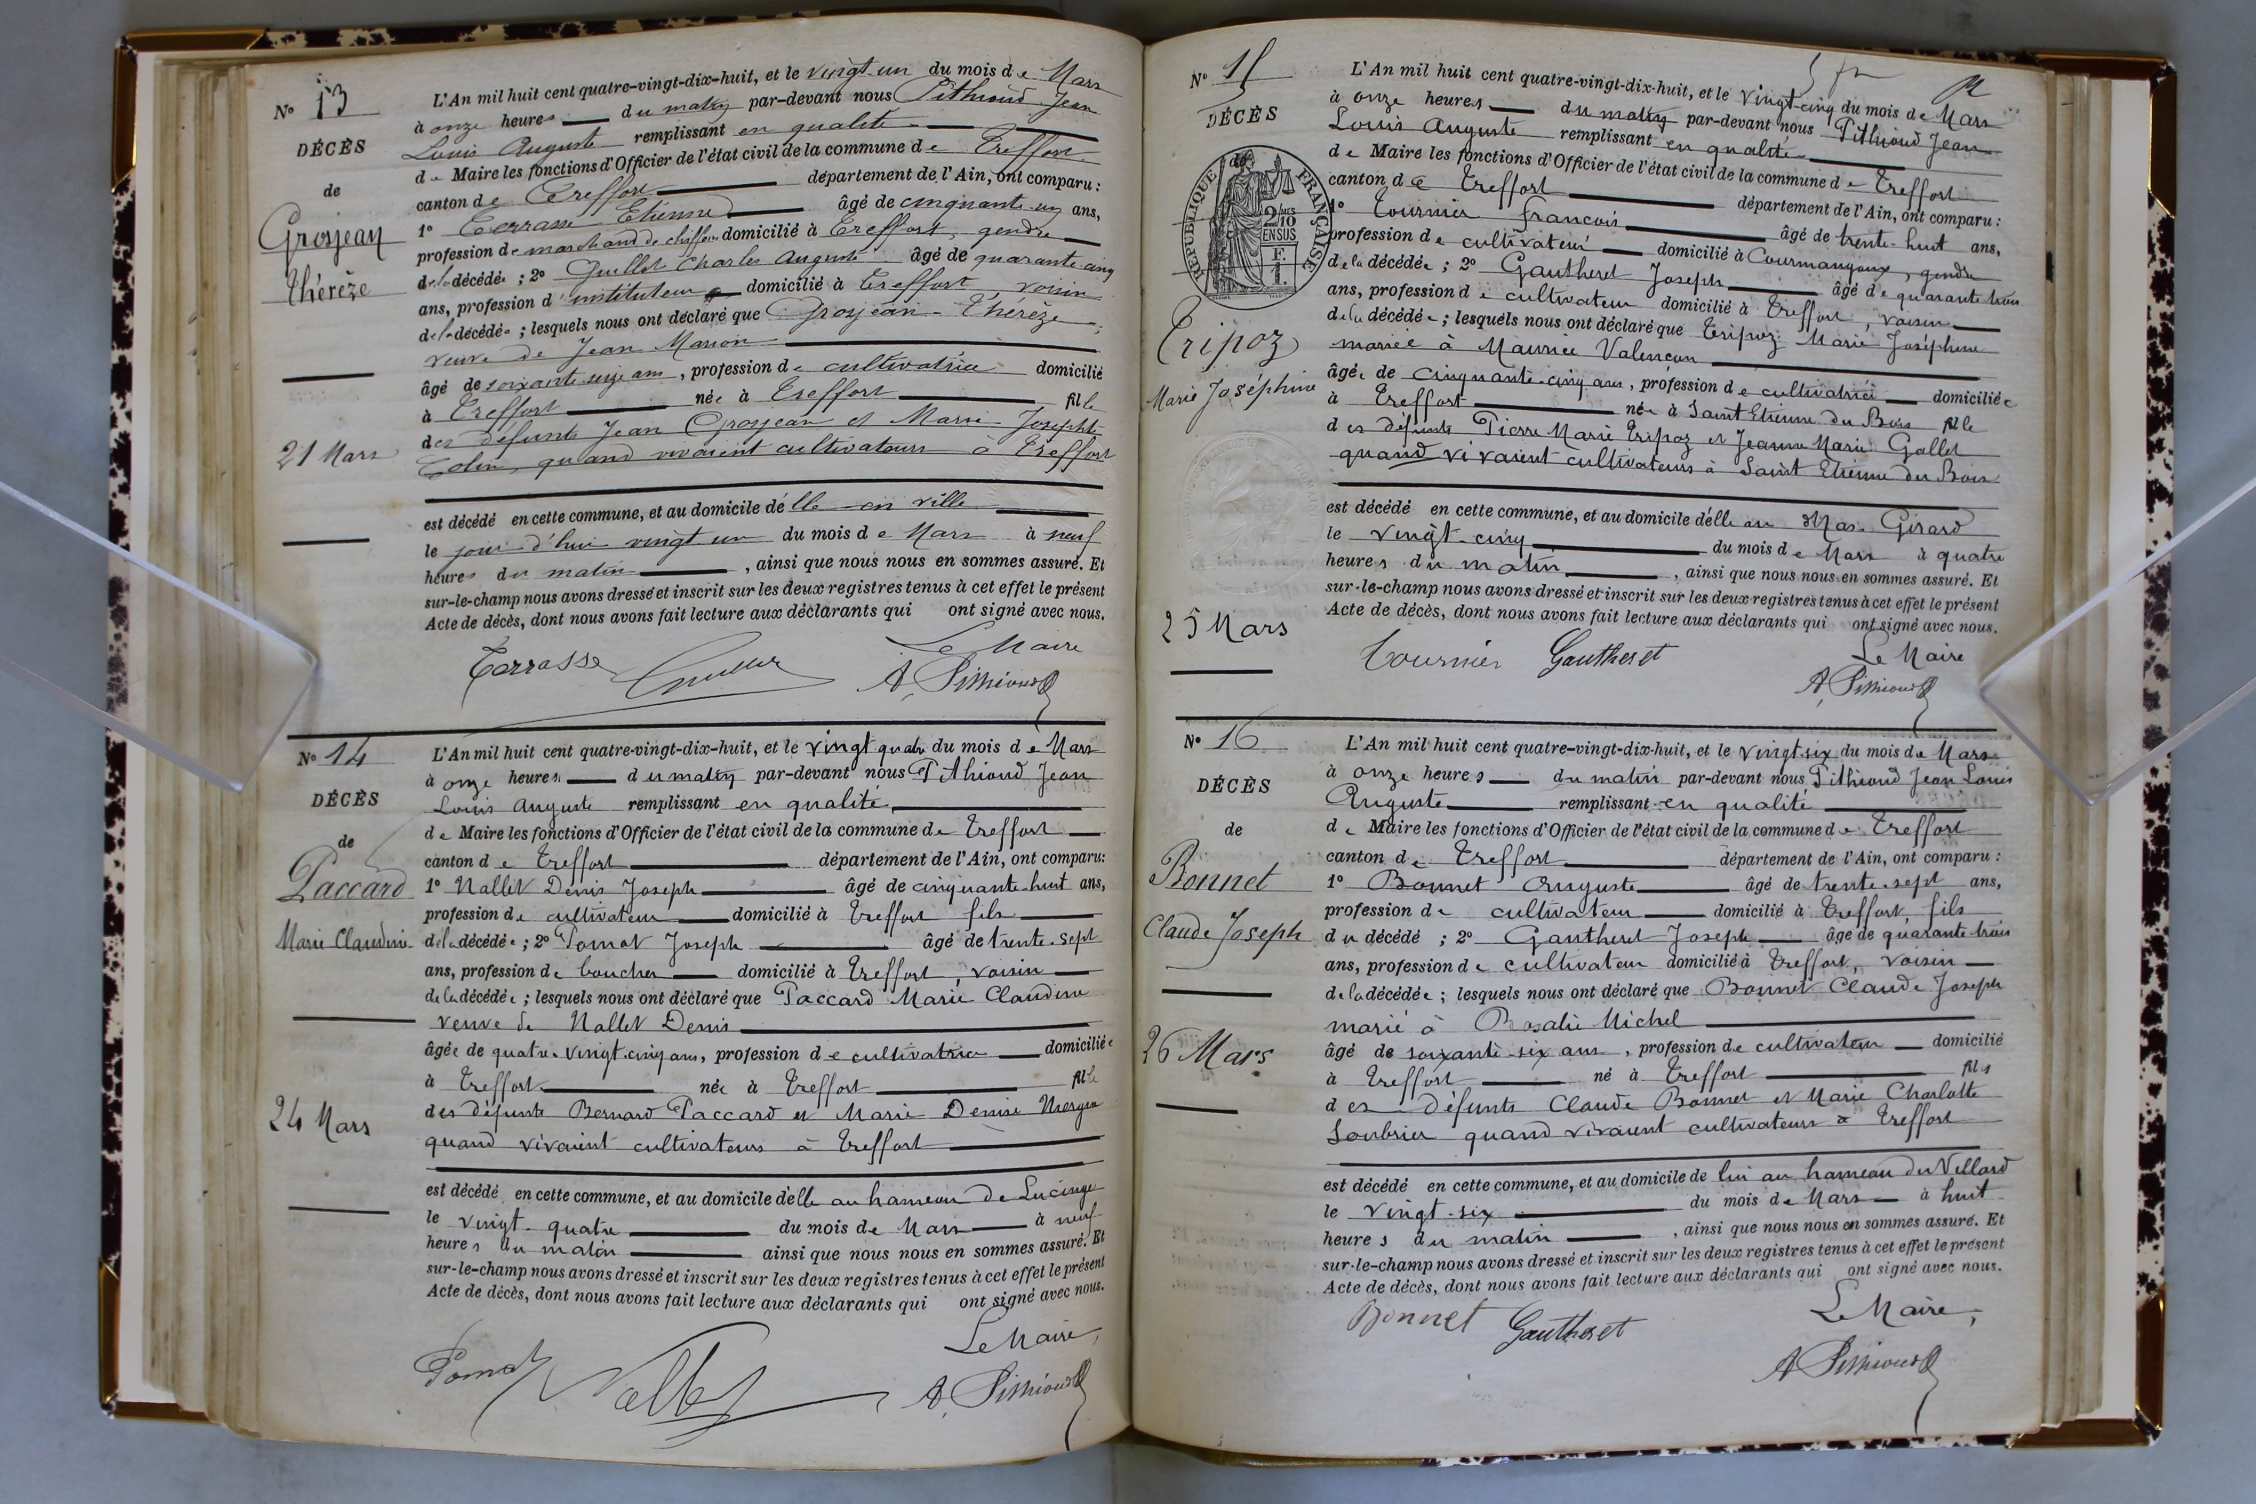 N° 13
DÉCÈS
de
Grosjean
Thérèze
21 Mars
L'An mil huit cent quatre-vingt-dix-huit, et le vingt-un du mois de Mars
à onze heures du matin par-devant nous Pithioud Jean
Louis Auguste remplissant en qualité
de Maire les fonctions d'Officier de l'état civil de la commune de Treffort
canton de Treffort département de l'Ain, ont comparu :
1° Terrasse Etienne âgé de cinquante-un ans,
profession de marchand de chiffons domicilié à Treffort, gendre
de la décédée ; 2° Guillet Charles Auguste âgé de quarante cinq
ans, profession d'instituteur domicilié à Treffort, voisin
de la décédée ; lesquels nous ont déclaré que Grosjean Thérèze,
veuve de Jean Marion
âgé de soixante seize ans, profession de cultivatrice domicilié
à Treffort née à Treffort fille
des défunts Jean Grosjean et Marie Josephte
Colin, quand vivaient cultivateurs à Treffort
est décédé en cette commune, et au domicile d'elle en ville
le jour d'hui vingt un du mois de Mars à neuf
heures du matin, ainsi que nous nous en sommes assuré. Et
sur-le-champ nous avons dressé et inscrit sur les deux registres tenus à cet effet le présent
Acte de décès, dont nous avons fait lecture aux déclarants qui ont signé avec nous.
Le Maire
Terrasse A. Pithioud
N° 14
DÉCÈS
de
Paccard
Marie Claudine
24 Mars
L'An mil huit cent quatre-vingt-dix-huit, et le vingt quatre du mois de Mars
à onze heures du matin par-devant nous Pithioud Jean
Louis Auguste remplissant en qualité
de Maire les fonctions d'Officier de l'état civil de la commune de Treffort
canton de Treffort département de l'Ain, ont comparu :
1° Nallet Denis Joseph âgé de cinquante-huit ans,
profession de cultivateur domicilié à Treffort fils
de la décédée ; 2° Pomat Joseph âgé de trente-sept
ans, profession de boucher domicilié à Treffort, voisin
de la décédée ; lesquels nous ont déclaré que Paccard Marie Claudine
veuve de Nallet Denis
âgée de quatre-vingt-cinq ans, profession de cultivatrice domiciliée
à Treffort née à Treffort fille
des défunts Bernard Paccard et Marie Denise
quand vivaient cultivateurs à Treffort
est décédé en cette commune, et au domicile d'elle au hameau de Lucinge
le vingt-quatre du mois de Mars à neuf
heures du matin ainsi que nous nous en sommes assuré. Et
sur-le-champ nous avons dressé et inscrit sur les deux registres tenus à cet effet le présent
Acte de décès, dont nous avons fait lecture aux déclarants qui ont signé avec nous.
Le Maire,
Pomat Nallet A. Pithioud
N° 15
DÉCÈS
de
RÉPUBLIQUE FRANÇAISE
2/10 MES
EN SUS
F.
1.
Tripoz
Marie Joséphine
25 Mars
L'An mil huit cent quatre-vingt-dix-huit, et le vingt-cinq du mois de Mars
à onze heures du matin par-devant nous Pithioud Jean
Louis Auguste remplissant en qualité
de Maire les fonctions d'Officier de l'état civil de la commune de Treffort
canton de Treffort département de l'Ain, ont comparu :
1° Tournier François âgé de trente-huit ans,
profession de cultivateur domicilié à Courmangoux, gendre
de la décédée ; 2° Gautheret Joseph âgé de quarante trois
ans, profession de cultivateur domicilié à Treffort, voisin
de la décédée ; lesquels nous ont déclaré que Tripoz Marie Joséphine
mariée à Maurice Valençon
âgée de cinquante-cinq ans, profession de cultivatrice domiciliée
à Treffort née à Saint Etienne du Bois fille
des défunts Pierre Marie Tripoz et Jeanne Marie Gallet
quand vivaient cultivateurs à Saint Etienne du Bois
est décédé en cette commune, et au domicile d'elle au Mas Girard
le vingt-cinq du mois de Mars à quatre
heures du matin, ainsi que nous nous en sommes assuré. Et
sur-le-champ nous avons dressé et inscrit sur les deux registres tenus à cet effet le présent
Acte de décès, dont nous avons fait lecture aux déclarants qui ont signé avec nous.
Le Maire
Tournier Gautheret A. Pithioud
N° 16
DÉCÈS
de
Bonnet
Claude Joseph
26 Mars
L'An mil huit cent quatre-vingt-dix-huit, et le vingt-six du mois de Mars
à onze heures du matin par-devant nous Pithioud Jean Louis
Auguste remplissant en qualité
de Maire les fonctions d'Officier de l'état civil de la commune de Treffort
canton de Treffort département de l'Ain, ont comparu :
1° Bonnet Auguste âgé de trente-sept ans,
profession de cultivateur domicilié à Treffort, fils
du décédé ; 2° Gautheret Joseph âgé de quarante trois
ans, profession de cultivateur domicilié à Treffort, voisin
de la décédée ; lesquels nous ont déclaré que Bonnet Claude Joseph
marié à Rosalie Michel
âgé de soixante-six ans, profession de cultivateur domicilié
à Treffort né à Treffort fils
des défunts Claude Bonnet et Marie Charlotte
Soubrier quand vivaient cultivateurs à Treffort
est décédé en cette commune, et au domicile de lui au hameau du Vellard
le vingt-six du mois de Mars à huit
heures du matin, ainsi que nous nous en sommes assuré. Et
sur-le-champ nous avons dressé et inscrit sur les deux registres tenus à cet effet le présent
Acte de décès, dont nous avons fait lecture aux déclarants qui ont signé avec nous.
Le Maire,
Bonnet Gautheret A Pithioud